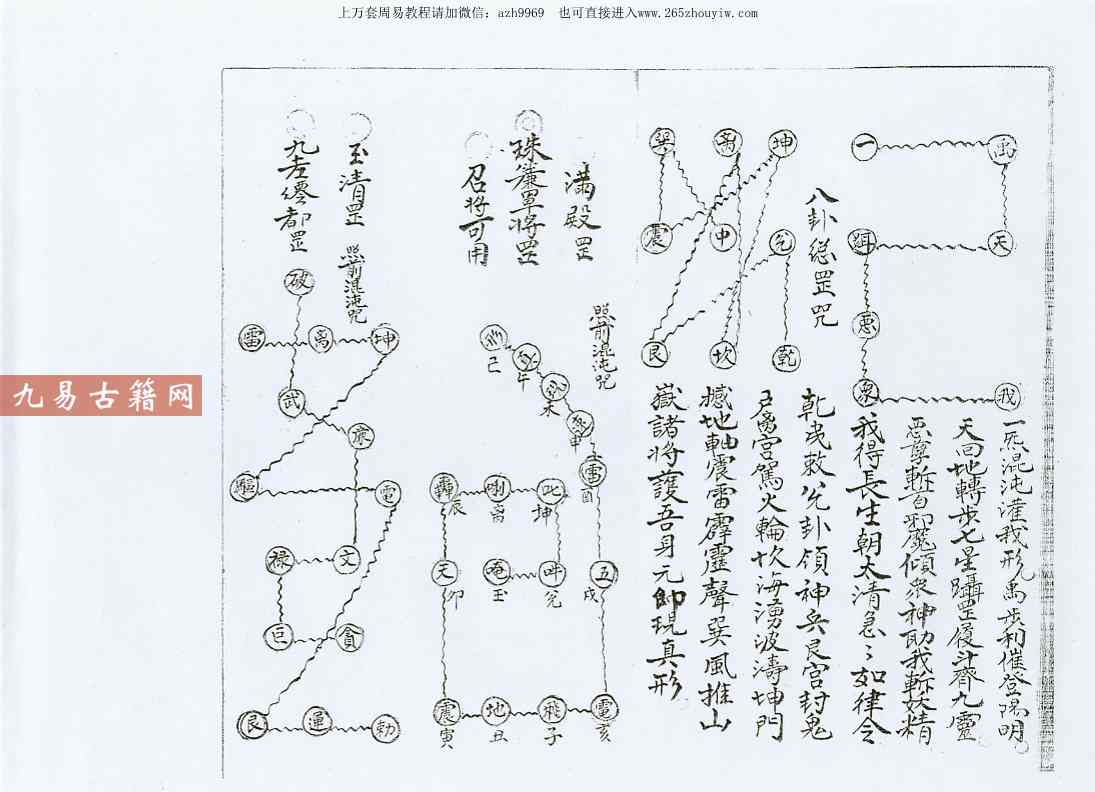 上万套周易教程请加微信：azh9969　也可直接进入www.265zhouyiw.com
九易古籍网
禹
一
天
罡
恶
众
我
一炁混沌灌我形禹步利催登陽明
天回地轉步七星躡罡履斗齊九靈
惡孽斬百邪魔傾衆神助我斬妖精
我得長生朝太清急々如律令
八卦總罡咒
坤
离
巽
兌
中
震
乾
坎
艮
乾曳敕兌卦領神兵艮宮封鬼
户离宮駕火輪坎海湧波濤坤門
撼地軸震雷霹靂聲巽風推山
嶽諸將護吾身元帥現真形
滿殿罡
照前混沌咒
珠簾罩將罡
召將可用
巳
午
未
申
雷
酉
此
坤
唎
离
轟
辰
吽
兌
唵
玉
天
卯
五
戌
電
亥
飛
子
地
丑
震
寅
玉清罡
照前混沌咒
坤
离
雷
電
驅
艮
運
勅
九老僊都罡
破
武
廉
文
禄
巨
貪